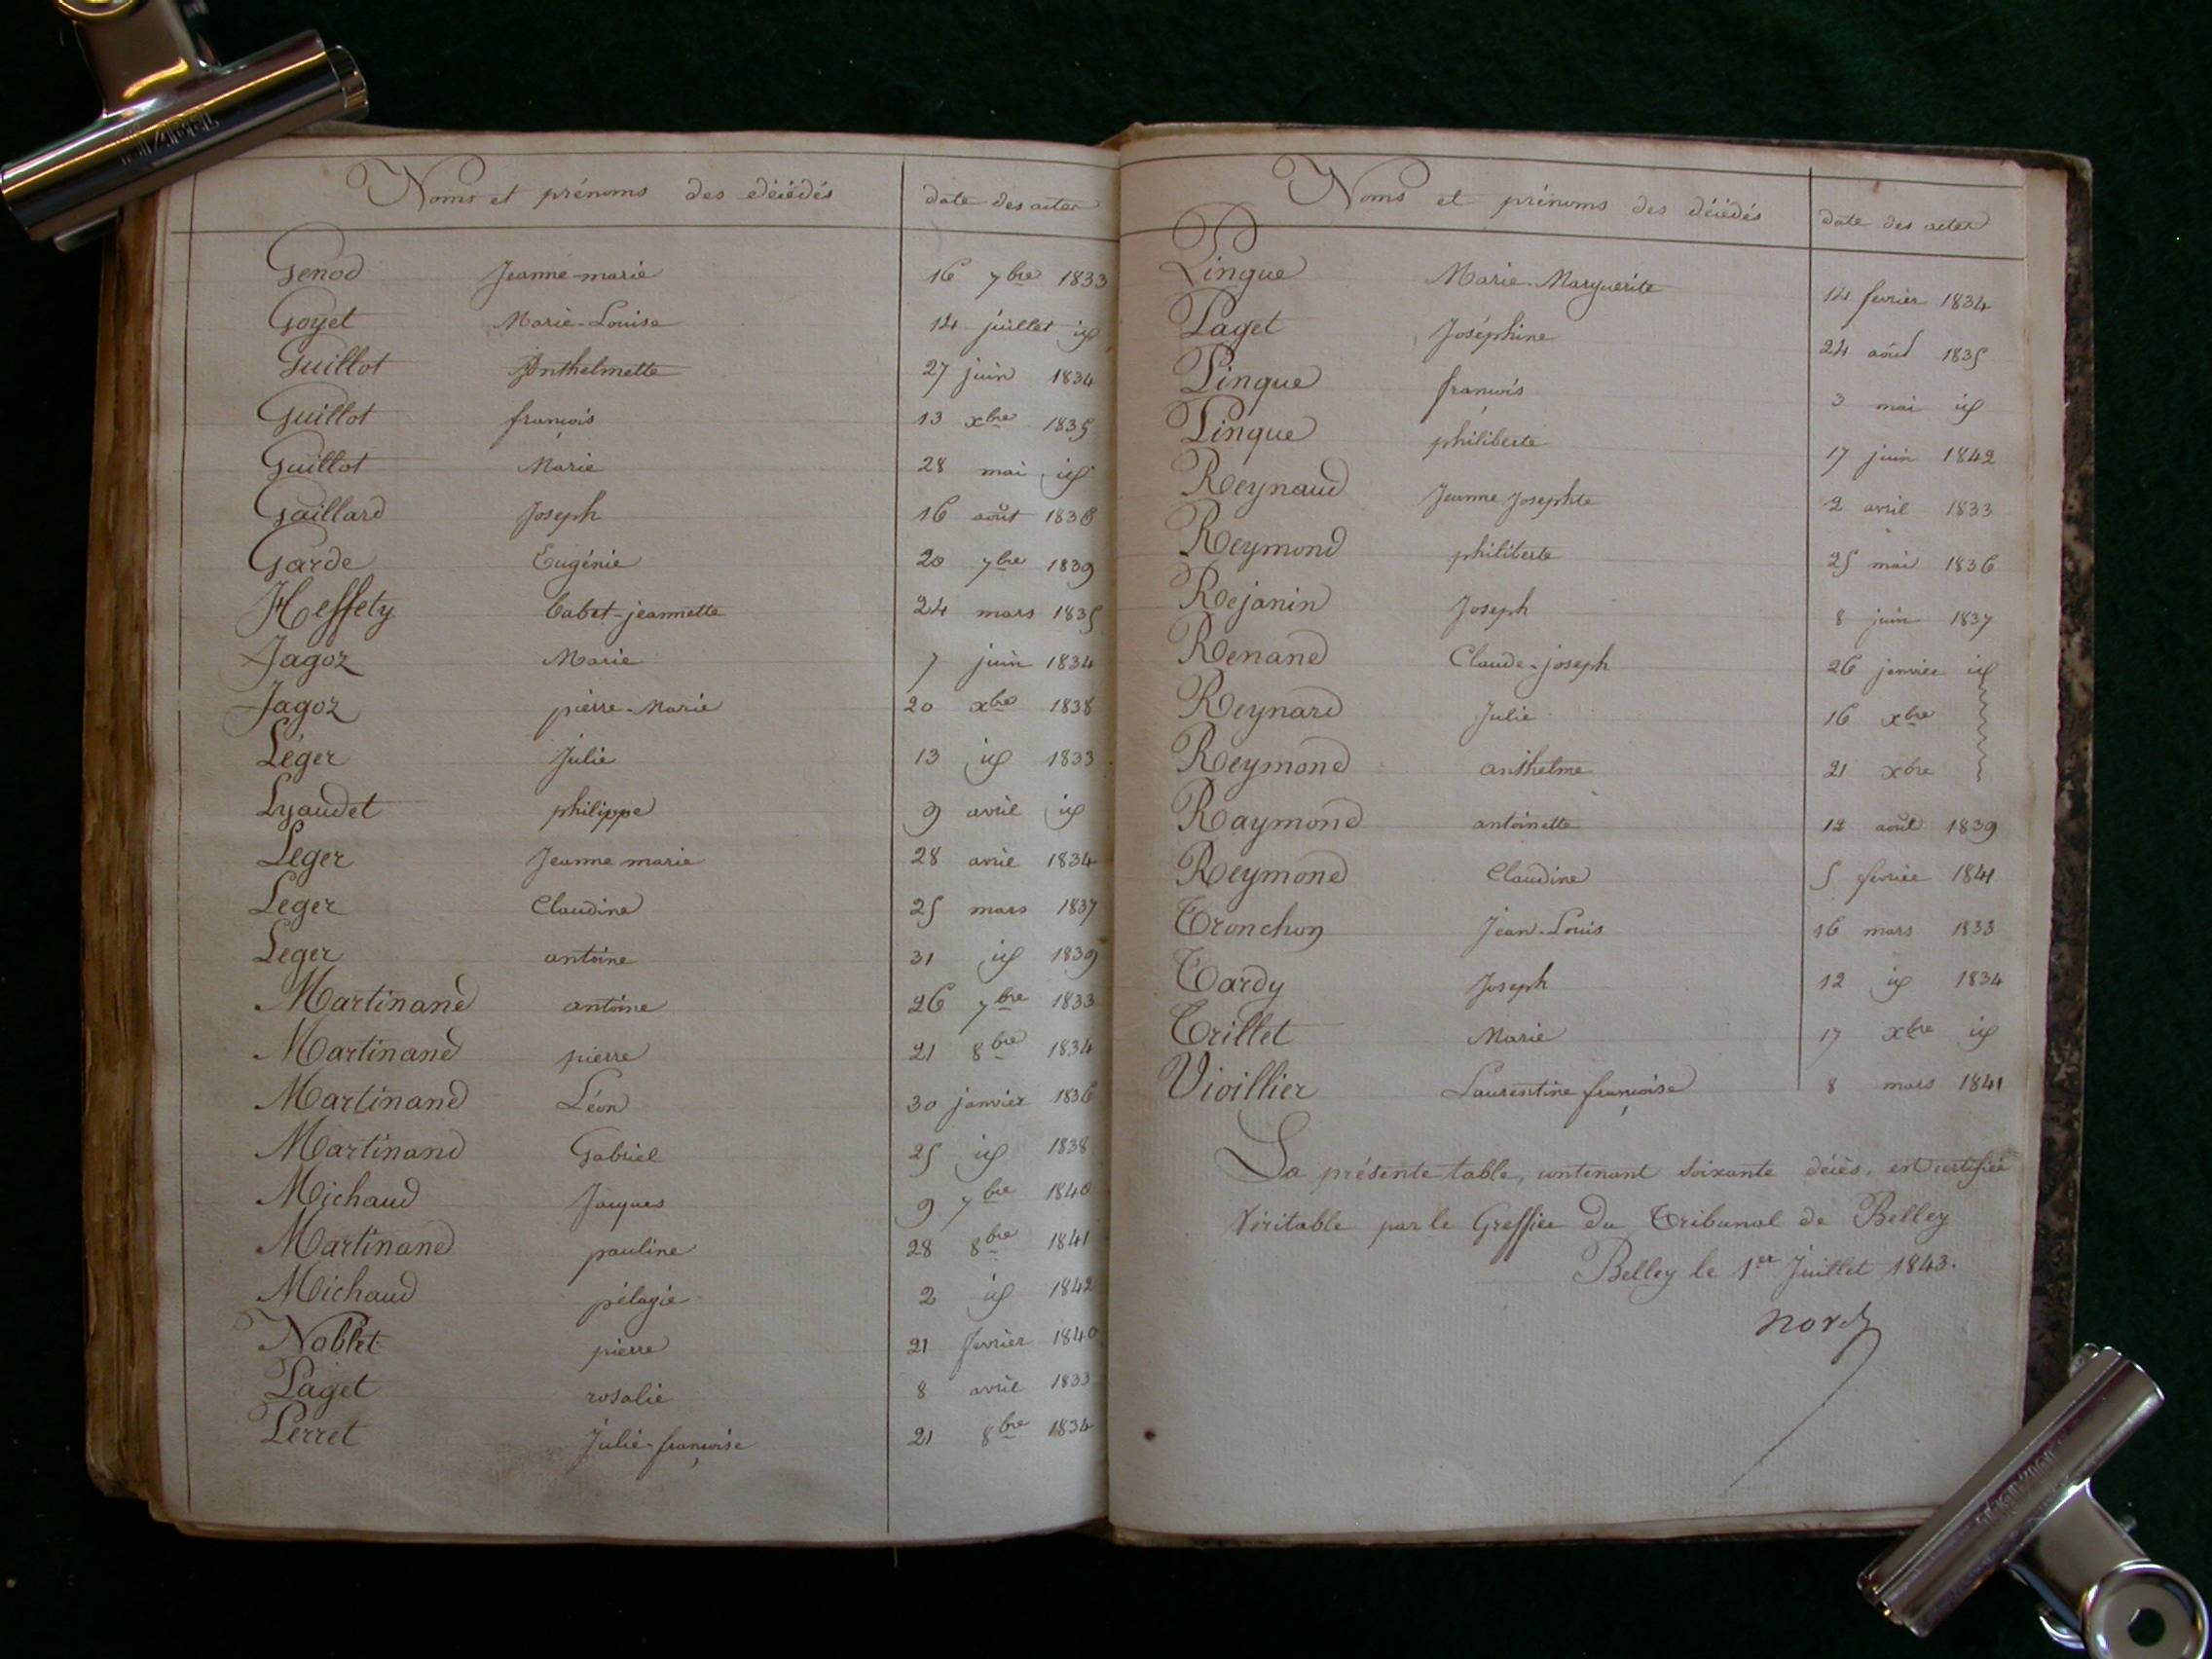 Noms et prénoms des décédés date des actes
Genod Jeanne-marie 16 7bre 1833
Goyet Marie-Louise 14 juillet id
Guillot Anthelmette 27 juin 1834
Guillot françois 13 xbre 1835
Guillot Marie 28 mai id
Gaillard Joseph 16 août 1836
Garde Eugénie 20 7bre 1839
Heffety babet-jeannette 24 mars 1835
Jagoz Marie 7 juin 1834
Jagoz pierre-Marie 20 xbre 1838
Léger Julie 13 id 1833
Lyaudet philippe 9 avril id
Leger Jeanne marie 28 avril 1834
Leger Claudine 25 mars 1837
Leger antoine 31 id 1839
Martinand antoine 26 7bre 1833
Martinand pierre 21 8bre 1834
Martinand Léon 30 janvier 1836
Martinand Gabriel 25 id 1838
Michaud Jacques 9 7bre 1840
Martinand pauline 28 8bre 1841
Michaud pélagie 2 id 1842
Noblet pierre 21 fevrier 1840
Paget rosalie 8 avril 1833
Perret Julie-françoise 21 8bre 1834
Noms et prénoms des décédés date des actes
Pingue Marie-Marguerite 14 fevrier 1834
Paget Joséphine 24 août 1835
Pingue françois 3 mai id
Pingue philiberte 17 juin 1842
Reynaud Jeanne Josephte 2 avril 1833
Reymond philiberte 25 mai 1836
Rejanin Joseph 8 juin 1837
Renand Claude-joseph 26 janvier id
Reynard Julie 16 xbre
Reymond anthelme 21 xbre
Raymond antoinette 12 août 1839
Reymond Claudine 5 fevrier 1841
Tronchon Jean-Louis 16 mars 1833
Tardy Joseph 12 id 1834
Trillet Marie 17 xbre id
Vioillier Laurentine françoise 8 mars 1841
La présente table, contenant soixante décès, est certifiée
véritable par le Greffier du Tribunal de Belley
Belley le 1er Juillet 1843.